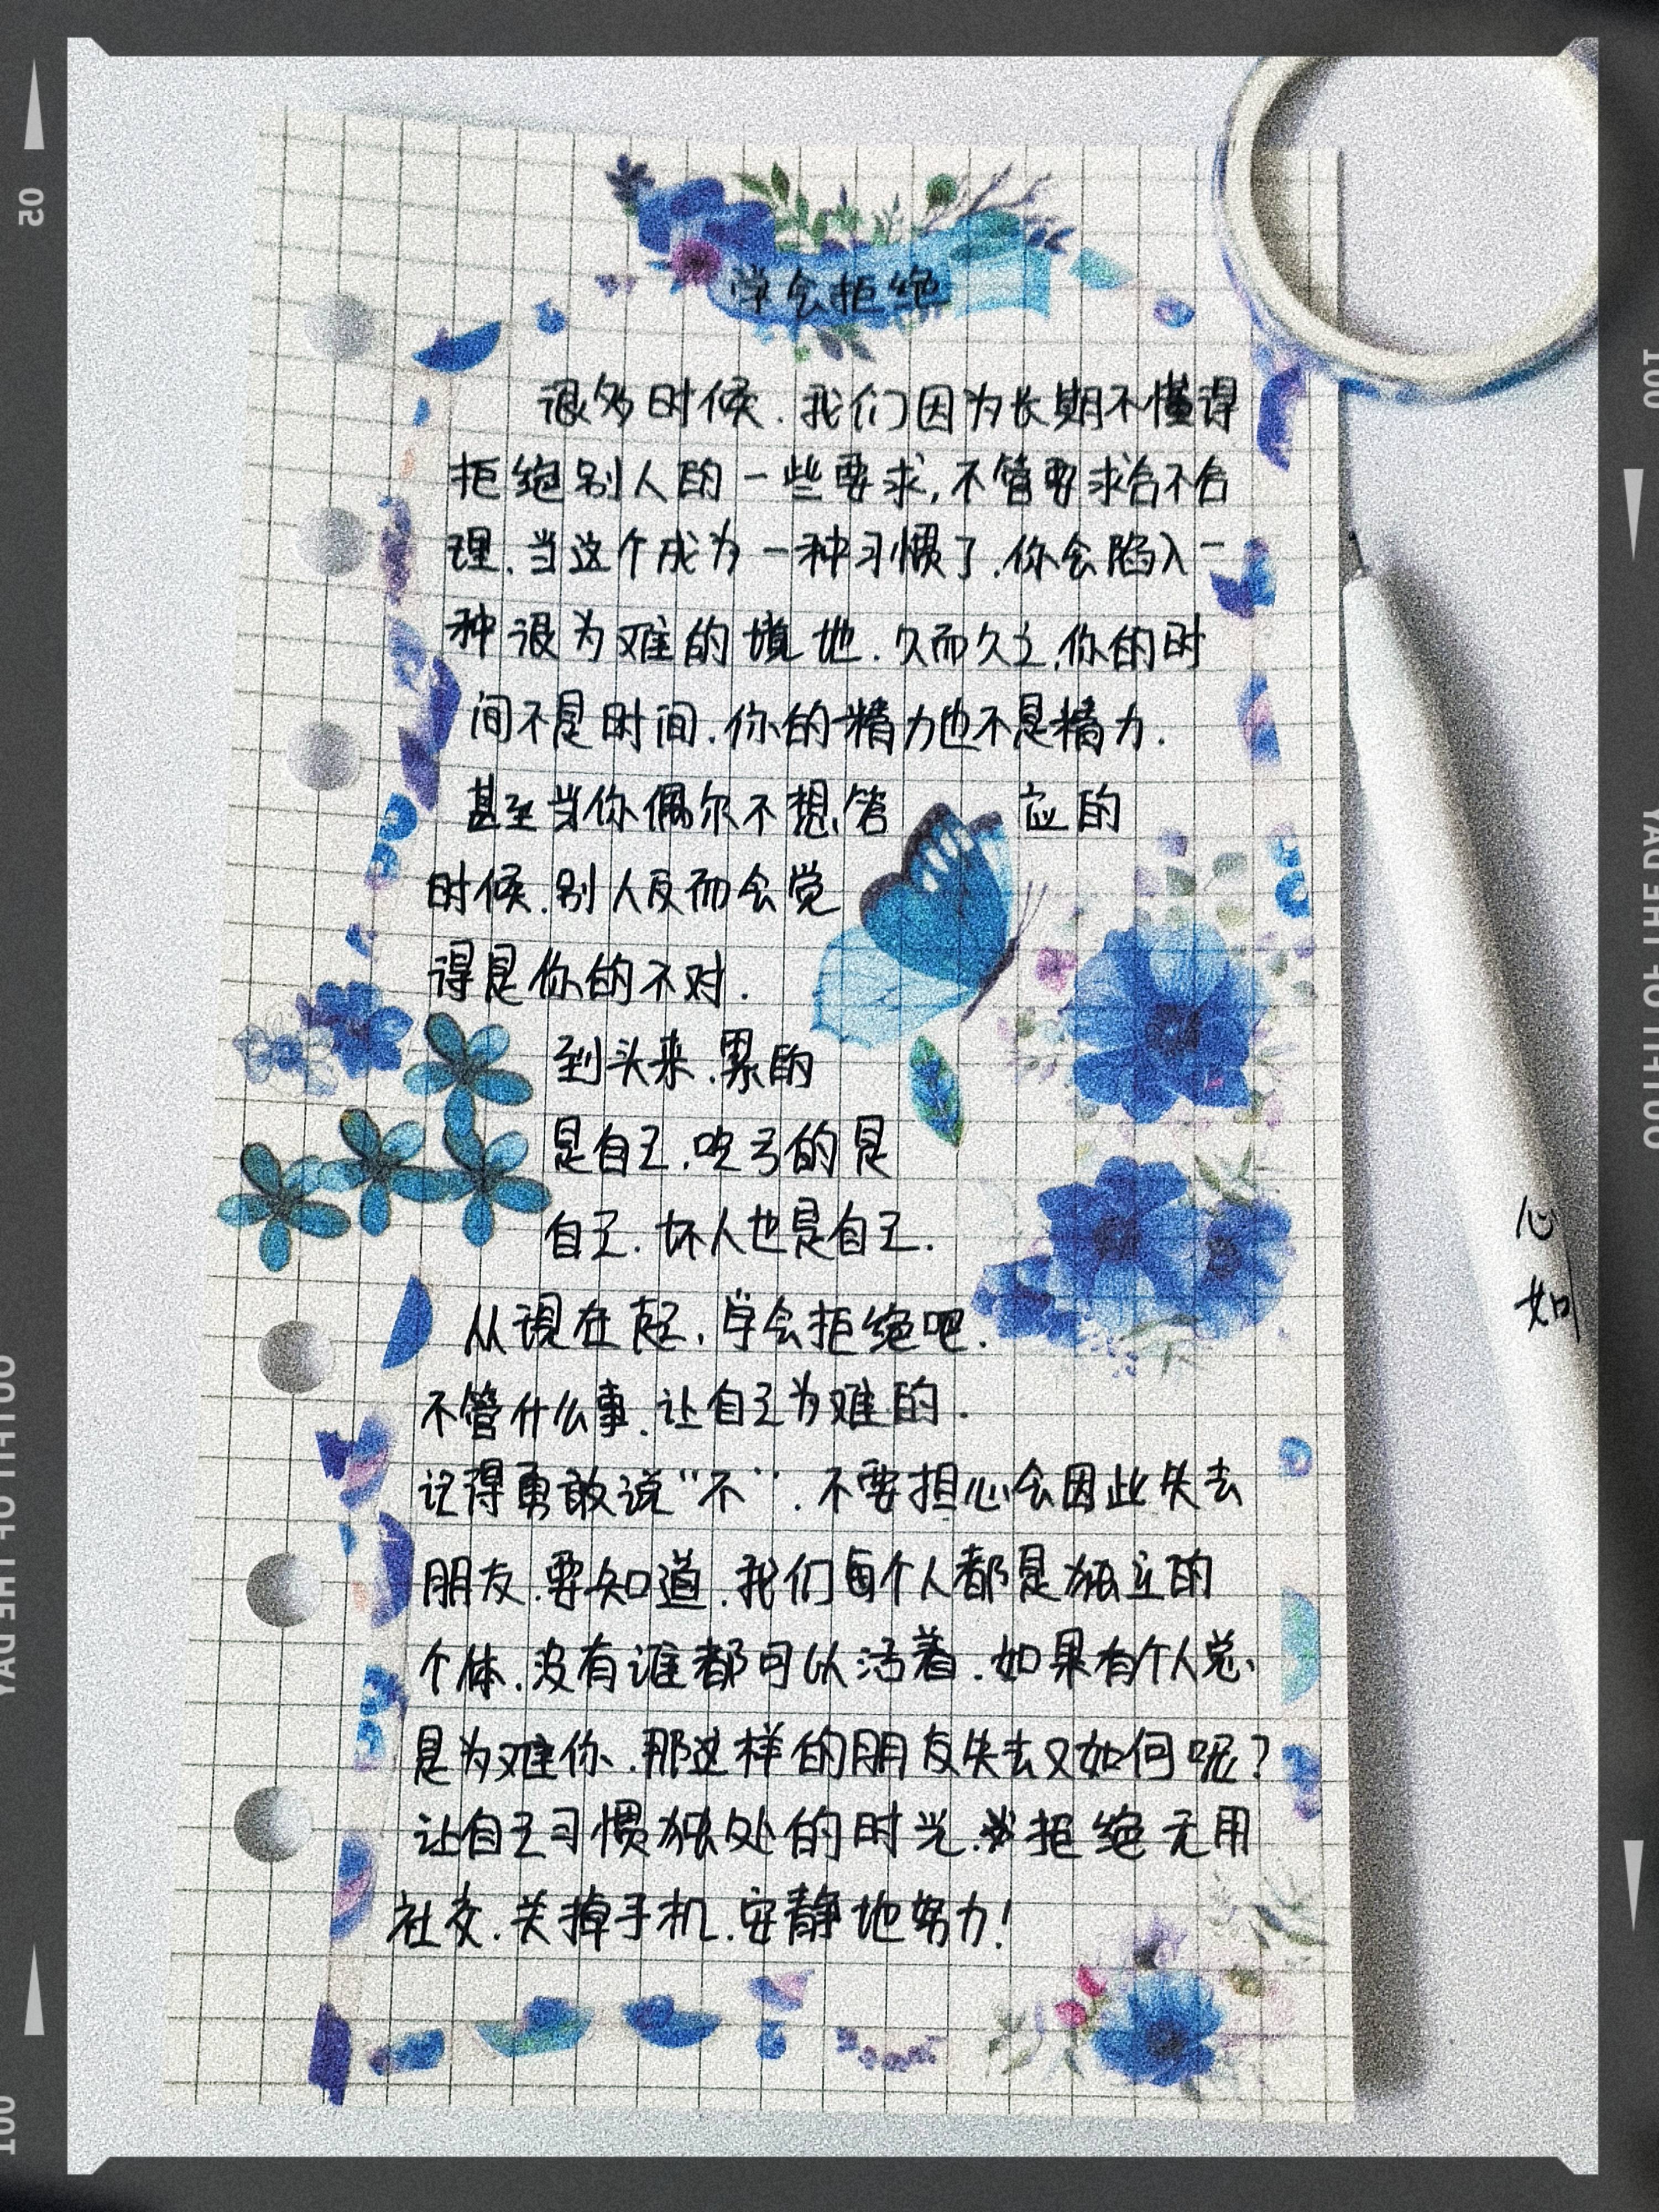 学会拒绝
很多时候.我们因为长期不懂得
拒绝别人的一些要求,不管要求合不合
理.当这个成为一种习惯了.你会陷入一
种很为难的境地.久而久之.你的时
间不是时间.你的精力也不是精力.
甚至当你偶尔不想答 应的
时候.别人反而会觉
得是你的不对.
到头来.累的
是自己.吃亏的是
自己.坏人也是自己.
从现在起.学会拒绝吧.
不管什么事.让自己为难的.
记得勇敢说"不".不要担心会因此失去
朋友.要知道.我们每个人都是独立的
个体.没有谁都可以活着.如果有个人总
是为难你.那这样的朋友失去又如何呢?
让自己习惯独处的时光.拒绝无用
社交.关掉手机.安静地努力!
心
如
05
100
OOTHTUO TO THE DAY
OOTHTUO TO THE DAY
100